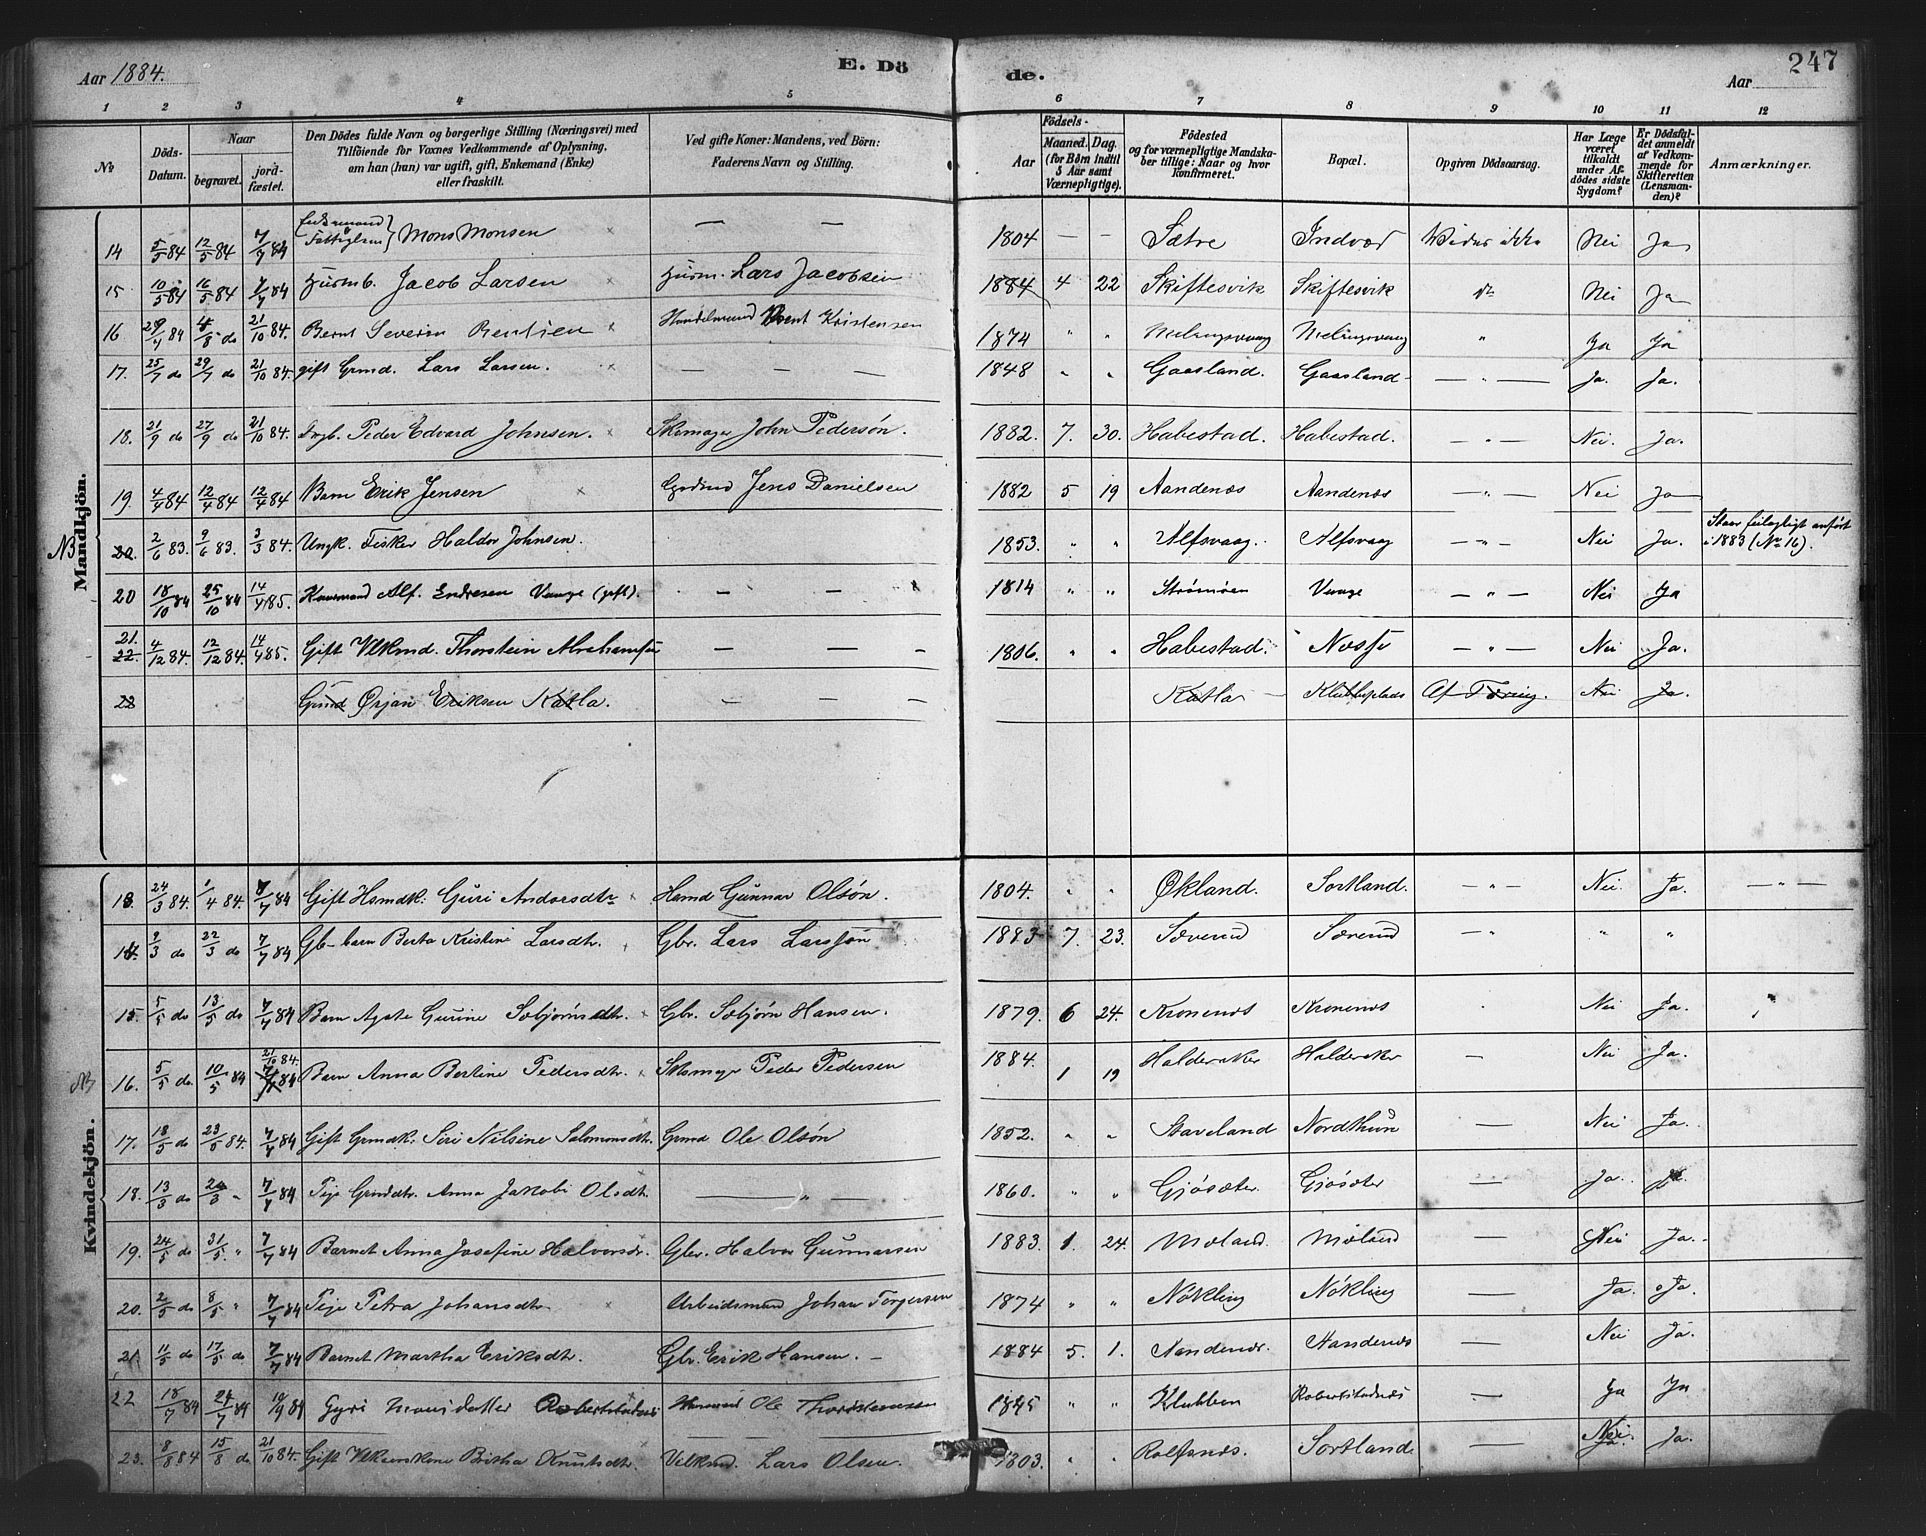 Aar 1884. E. Dö de. Aar 247
1 2 3 4 5 6 7 8 9 10 11 12
No
Döds-Datum.
Naar begravet. jordfæstet.
Den Dödes fulde Navn og borgerlige Stilling (Næringsvei) med
Tilföiende for Voxnes Vedkommende af Oplysning,
om han (hun) var ugift, gift, Enkemand (Enke)
eller fraskilt.
Ved gifte Koner: Mandens, ved Börn:
Faderens Navn og Stilling.
Födsels-
Aar Maaned. Dag.
(for Börn indtil 5 Aar samt Værnepligtige).
Födested
og for værnepligtige Mandskaber tillige: Naar og hvor Konfirmeret.
Bopæl.
Opgiven Dödsaarsag.
Har Læge været tilkaldt under Afdödes sidste Sygdom?
Er Dödsfaldet anmeldt af Vedkommende for Skifteretten (Lensmanden)?
Anmærkninger.
Mandkjön.
14 5/5 84 12/5 84 7/7 84 Mons Monsen — — 1804 — — Sætre Indvær Vides ikke Nei Ja
15 10/5 84 16/5 84 7/7 84 Husmb. Jacob Larsen Husm. Lars Jacobsen 1884 4 22 Skiftesvik Skiftesvik do Nei Ja
16 84 do 21/10 84. Bernt Severin Bentsen Kristensen 1874 " " Melingsvaag Melingsvaag " Ja Ja
17. 25/7 do 29/7 do 21/10 84. gift Grmd. Lars Larsen. — — — 1848 " " Gaasland. Gaasland — " — Ja. Ja.
18. 21/9 do 27/9 do 21/10 84. Peder Edvard Johnsen. Skomager John Pedersøn. 1882. 7. 30. Habestad. Habestad. — " — Nei. Ja.
19 4/4 84 12/4 84 12/4 84 Barn Erik Jensen Jens Danielsen 1882 5 19 Aandenæs Aandenæs — " — Nei Ja
NB 20. 2/6 83. 9/6 83. 3/3 84. Ungk. Fisker Haldor Johnsen. 1853. " " Alfsvaag. Alfsvaag — " — Nei Ja. Staar feilagligt anført
i 1883 (No 16).
20 18/10 84 25/10 84 14/4 85. Alf. Endresen Vaage (gift). — — 1814 " " Strømøen Vaage — " — Nei Ja
21. 22. 4/12 84. 12/12 84. 14/4 85. Gift Vlkmd. Thorstein Abrahamsen — — — 1806. " " Habestad. Nesse — " — Nei Ja.
22 Grmd Ørjan Eriksen Katla. — — — Katla Klubbeplads Af Tæring. Nei Ja.
Kvindekjön.
13. 24/3 84. 1/4 84. 7/7 84 Gift Hsmdk: Guri Andersdtr Hsmd Gunnar Olsøn. 1804. " " Økland. Sortland. — " — Nei. Ja. — " —
14. 9/3 do 22/3 do 7/7 84 Gb-barn Berta Kristine Larsdtr. Gbr. Lars Larssøn 1883 7. 23. Sæverud Sæverud — " " "
15. 5/5 do 13/5 do 7/7 84 Barn Agate Gurine Sebjørnsdtr. Gbr. Sebjørn Hansen. 1879. 6 24. Kronenes Kronenes Nei Ja. "
NB 16. 5/5 do. 10/5 84 21/10 84. 7/7 84 Barn Anna Bertine Pedersdtr. Skomager Peder Pedersen 1884. 1 19 Halderaker Halderaker — Nei Ja.
17. 18/5 do 23/5 84. 7/7 84 Gift Grmdk. Siri Nilsine Salmonsdtr. Grmd Ole Olsøn 1852. " " Staveland Nordthun — Nei Ja.
18. 13/3 do 7/7 84 Pige Grmddtr. Anna Jakobi Olsdtr. — " — 1860. " " Gjøsæter. Gjøsæter — Ja.
19. 24/5 do 31/5 " 7/7 84 Barnet Anna Josefine Halvorsdr. Gbr. Halvor Gunnarsen 1883. 1. 24. Meland. Meland — Nei Ja.
20. 2/5 do 8/5 " 7/7 84 Pige Petra Johansdtr Arbeidsmand Johan Torgersen 1874 " " Nøkling Nøkling — Ja. Ja.
21 11/5 do 17/5 do 7/7 84 Barnet Martha Eriksdtr. Gbr. Erik Hansen. — 1884 5. 1. Aandenæs. Aandenæs — Nei Ja.
22 18/7 84 24/7 84 10/9 84 Gyri Monsdatter Ole Thorstensen " " Klubben Robertstadnes — Ja Ja
23. 8/8 84 15/8 do 21/10 84. Gift Vlkaarskone Britha Knutsdtr. Vilkmd. Lars Olsen. 1803. " " Rolfsnes. Sortland — Nei. Ja. Ja.